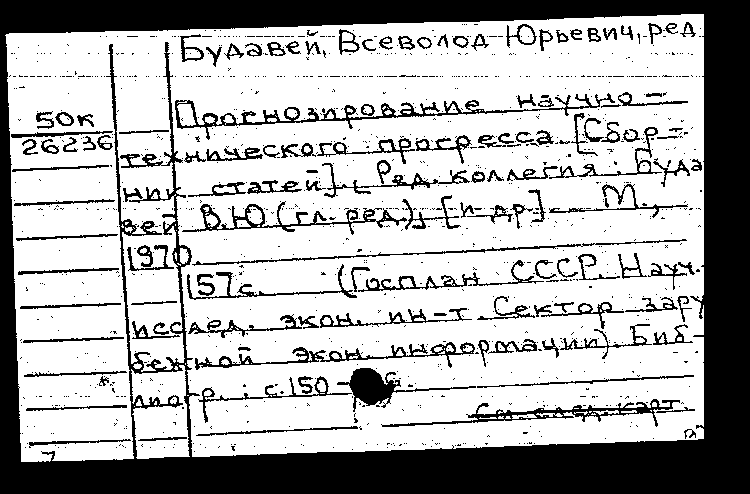 Будавей, Всеволод Юрьевич, ред
50к
26236
Прогнозирование научно-
технического прогресса [Сбор-
ник статей]. Ред. коллегия: Буда
вей В.Ю (гл. ред.), [и др]. М.,
1970.
157с. (Госплан СССР. Науч.-
исслед. экон. ин-т. Сектор зару
бежной экон. информации). Биб-
лиогр.: с.150-
См. след. карт.